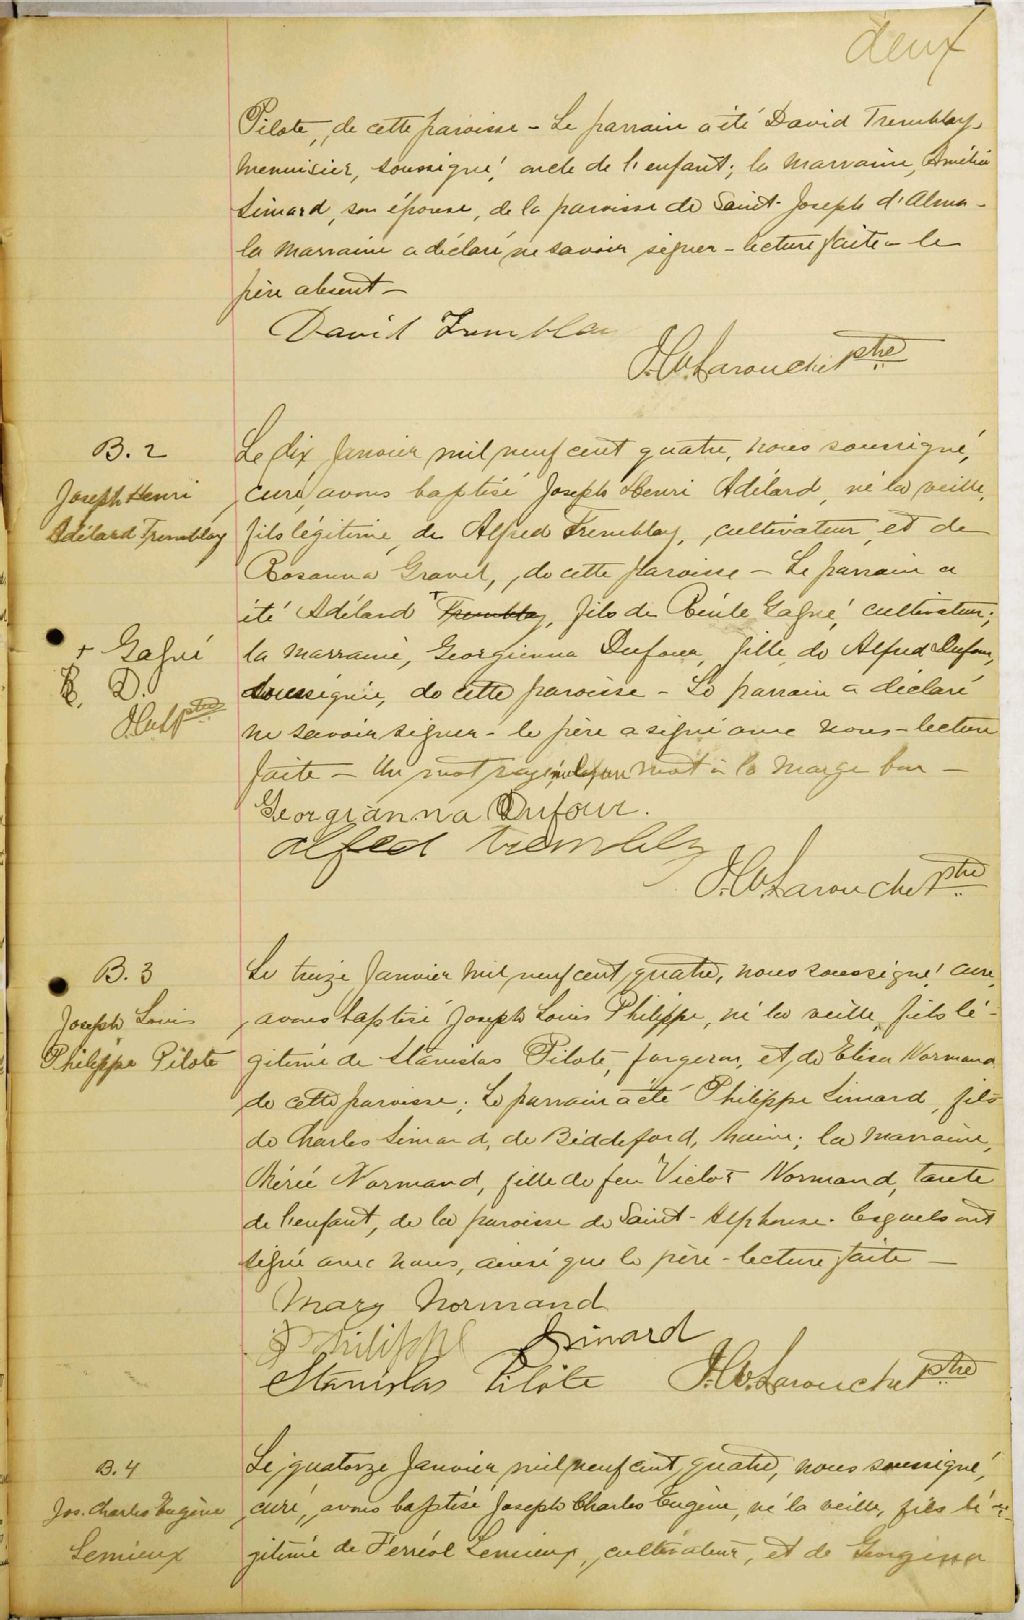 deux
Pilote, de cette paroisse - Le parrain a été David Tremblay
menuisier, soussigné, oncle de l'enfant; la marraine, Amélia
Simard, son épouse, de la paroisse de Saint-Joseph d'Alma -
la marraine a déclaré ne savoir signer - lecture faite - le
père absent -
David Tremblay
J.W. Larouche ptre
B. 2
Joseph Henri
Adélard Tremblay
Le dix Janvier mil neuf cent quatre, nous soussigné,
curé, avons baptisé Joseph Henri Adélard, né la veille,
fils légitime de Alfred Tremblay, cultivateur, et de
Rosanna Gravel, de cette paroisse - Le parrain a
été Adélard + Tremblay, fils de Gagné, cultivateur;
+ Gagné
D.
ptre
la marraine, Georgianna Dufour, fille de Alfred Dufour,
soussignée, de cette paroisse - Le parrain a déclaré
ne savoir signer - le père a signé avec nous - lecture
faite - Un mot rayé nul, un mot à la marge bon -
Georgianna Dufour.
alfed tremblay
J.W. Larouche ptre
B. 3
Joseph Louis
Philippe Pilote
Le treize Janvier mil neuf cent quatre, nous soussigné, curé,
avons baptisé Joseph Louis Philippe, né la veille, fils lé-
gitime de Stanislas Pilote, forgeron, et de Elisa Normand
de cette paroisse; Le parrain a été Philippe Simard, fils
de Charles Simard, de Biddeford, Maine; la marraine,
Normand, fille de feu Victor Normand, tante
de l'enfant, de la paroisse de Saint-Alphonse. lesquels ont
signé avec nous, ainsi que le père - lecture faite -
Mary Normand
Philippe Simard
Stanislas Pilote
J.W. Larouche ptre
B. 4
Jos. Charles Eugène
Lemieux
Le quatorze Janvier mil neuf cent quatre, nous soussigné,
curé, avons baptisé Joseph Charles Eugène, né la veille, fils lé-
gitime de Ferréol Lemieux, cultivateur, et de Georgina